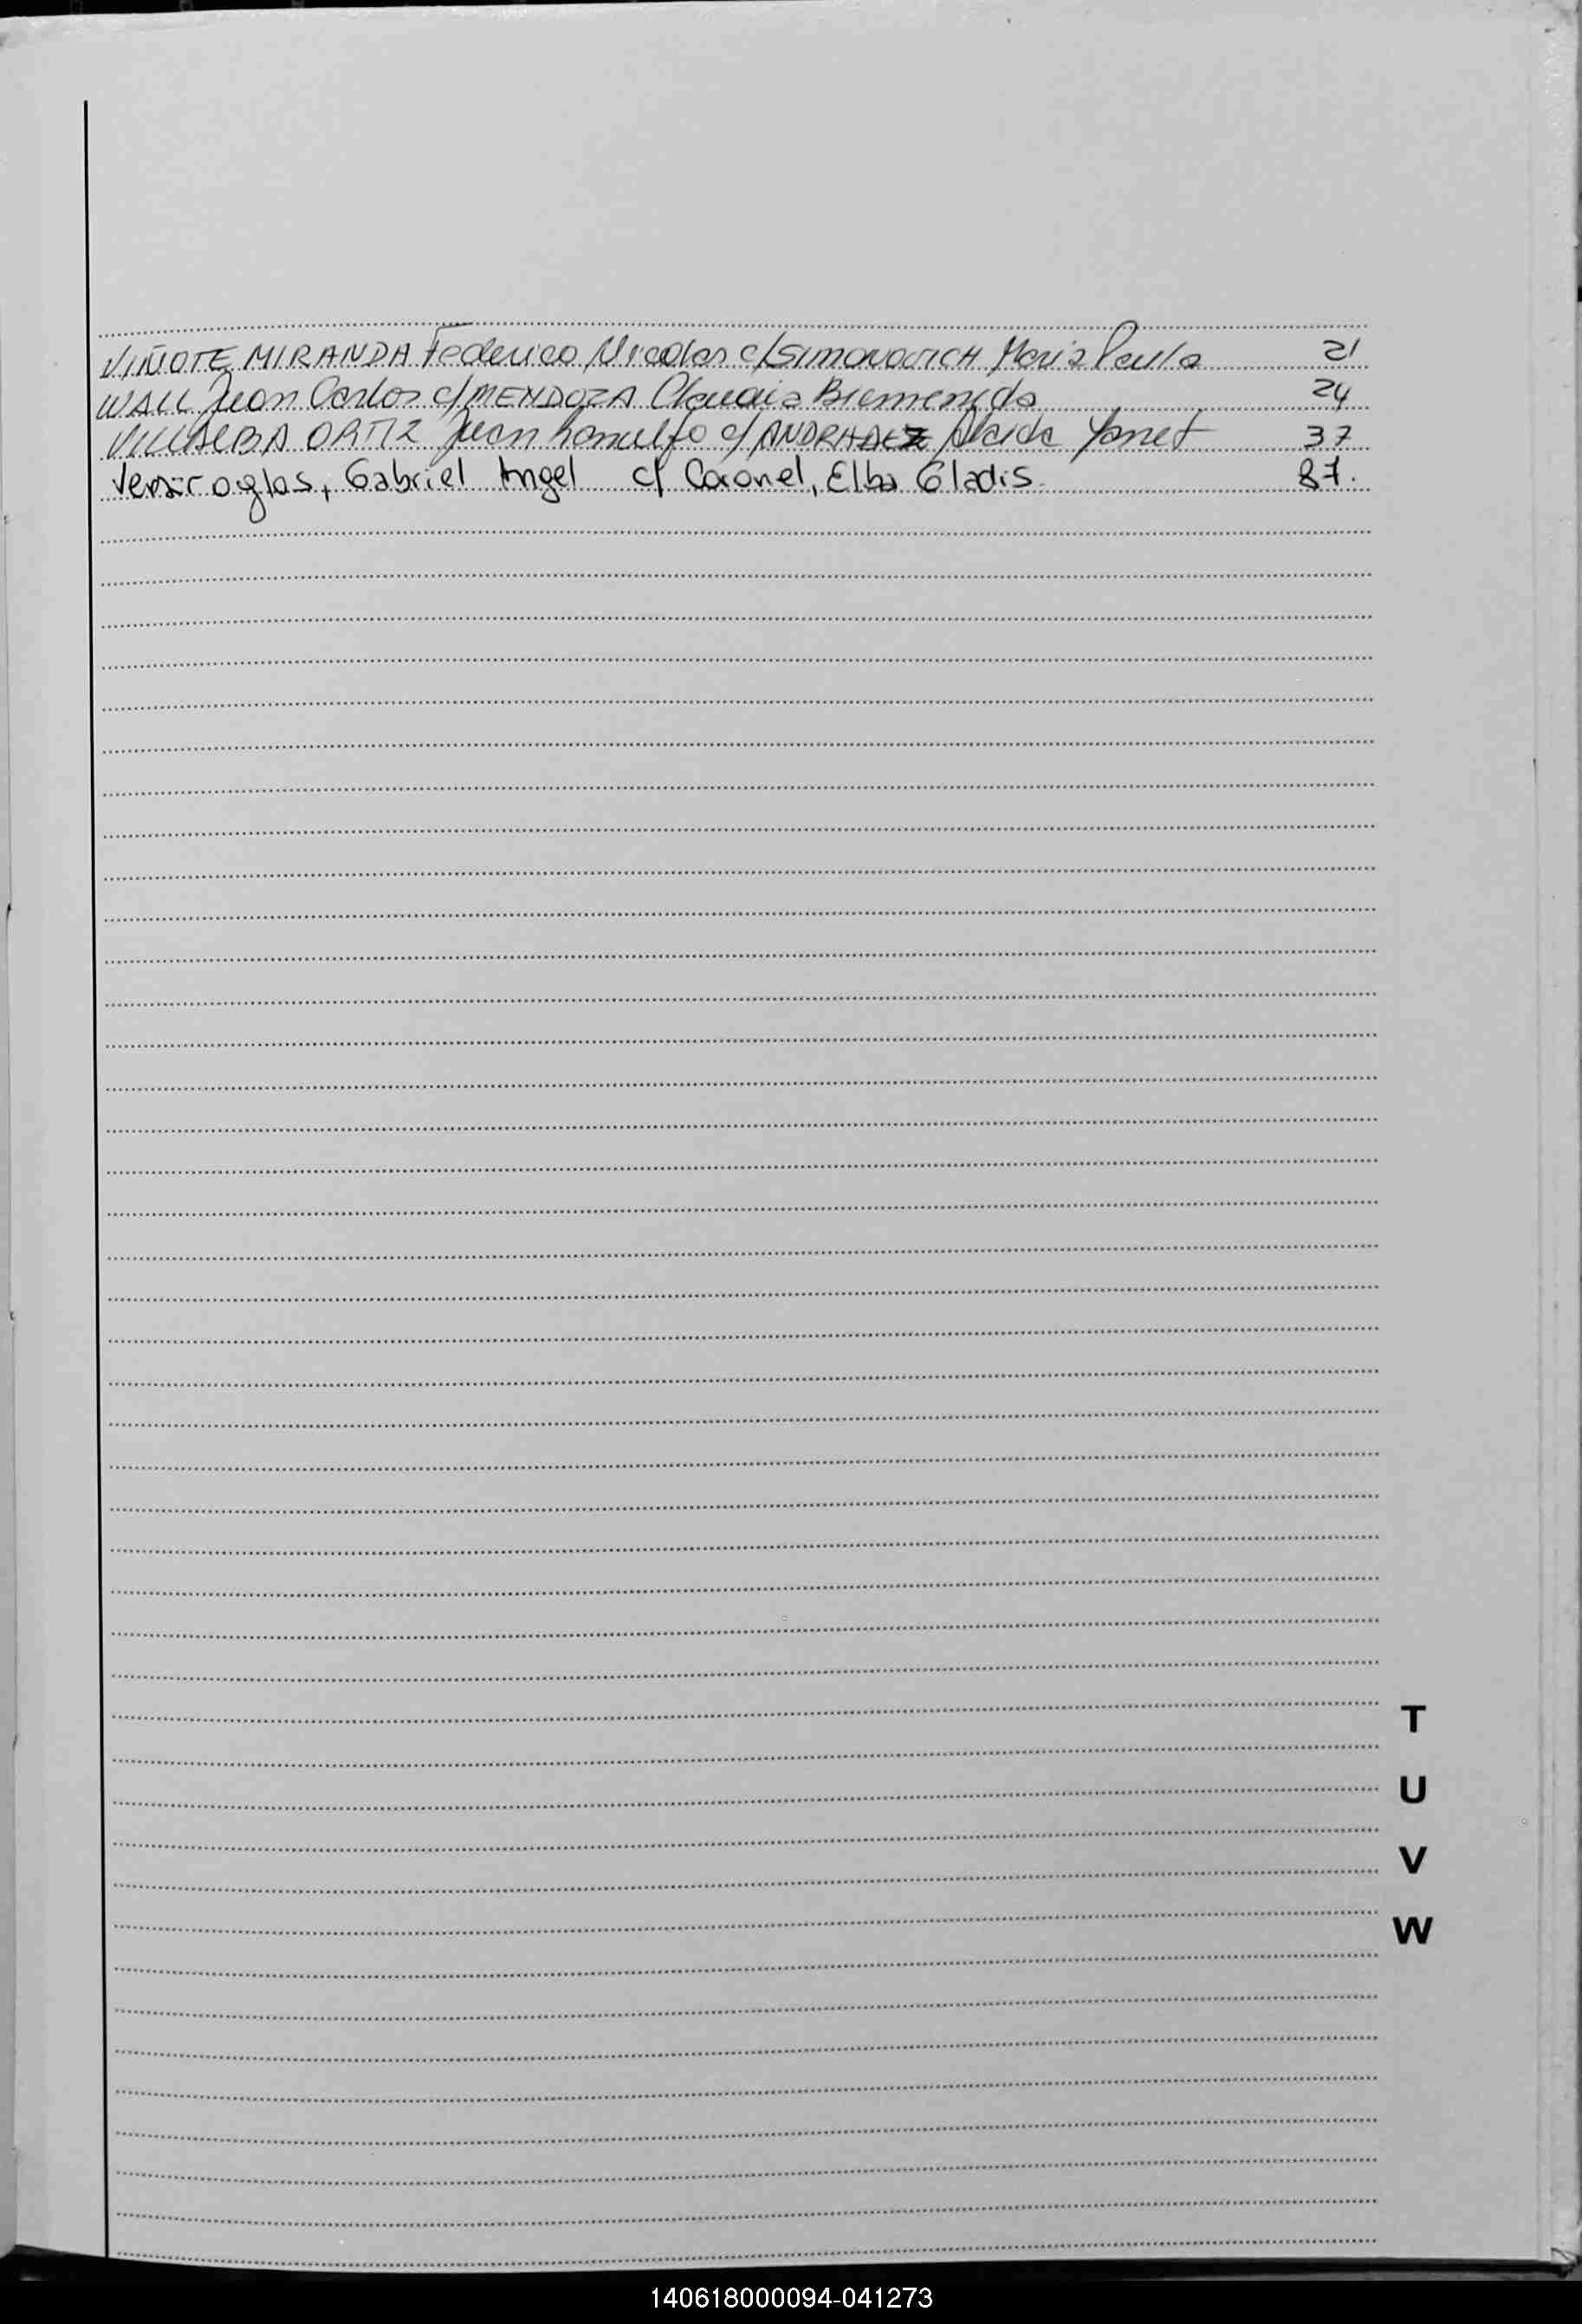 VIÑOTE MIRANDA Federico Nicolas c/ SIMONOVICH Maria Paula 21
WALL Juan Carlos c/ MENDOZA Claudia Bienvenida 24
VILLALBA ORTIZ Juan Ranulfo c/ ANDRADEZ Alcida Yanet 37
Gabriel Angel c/ Coronel, Elba Gladis. 87.
T
U
V
W
140618000094-041273